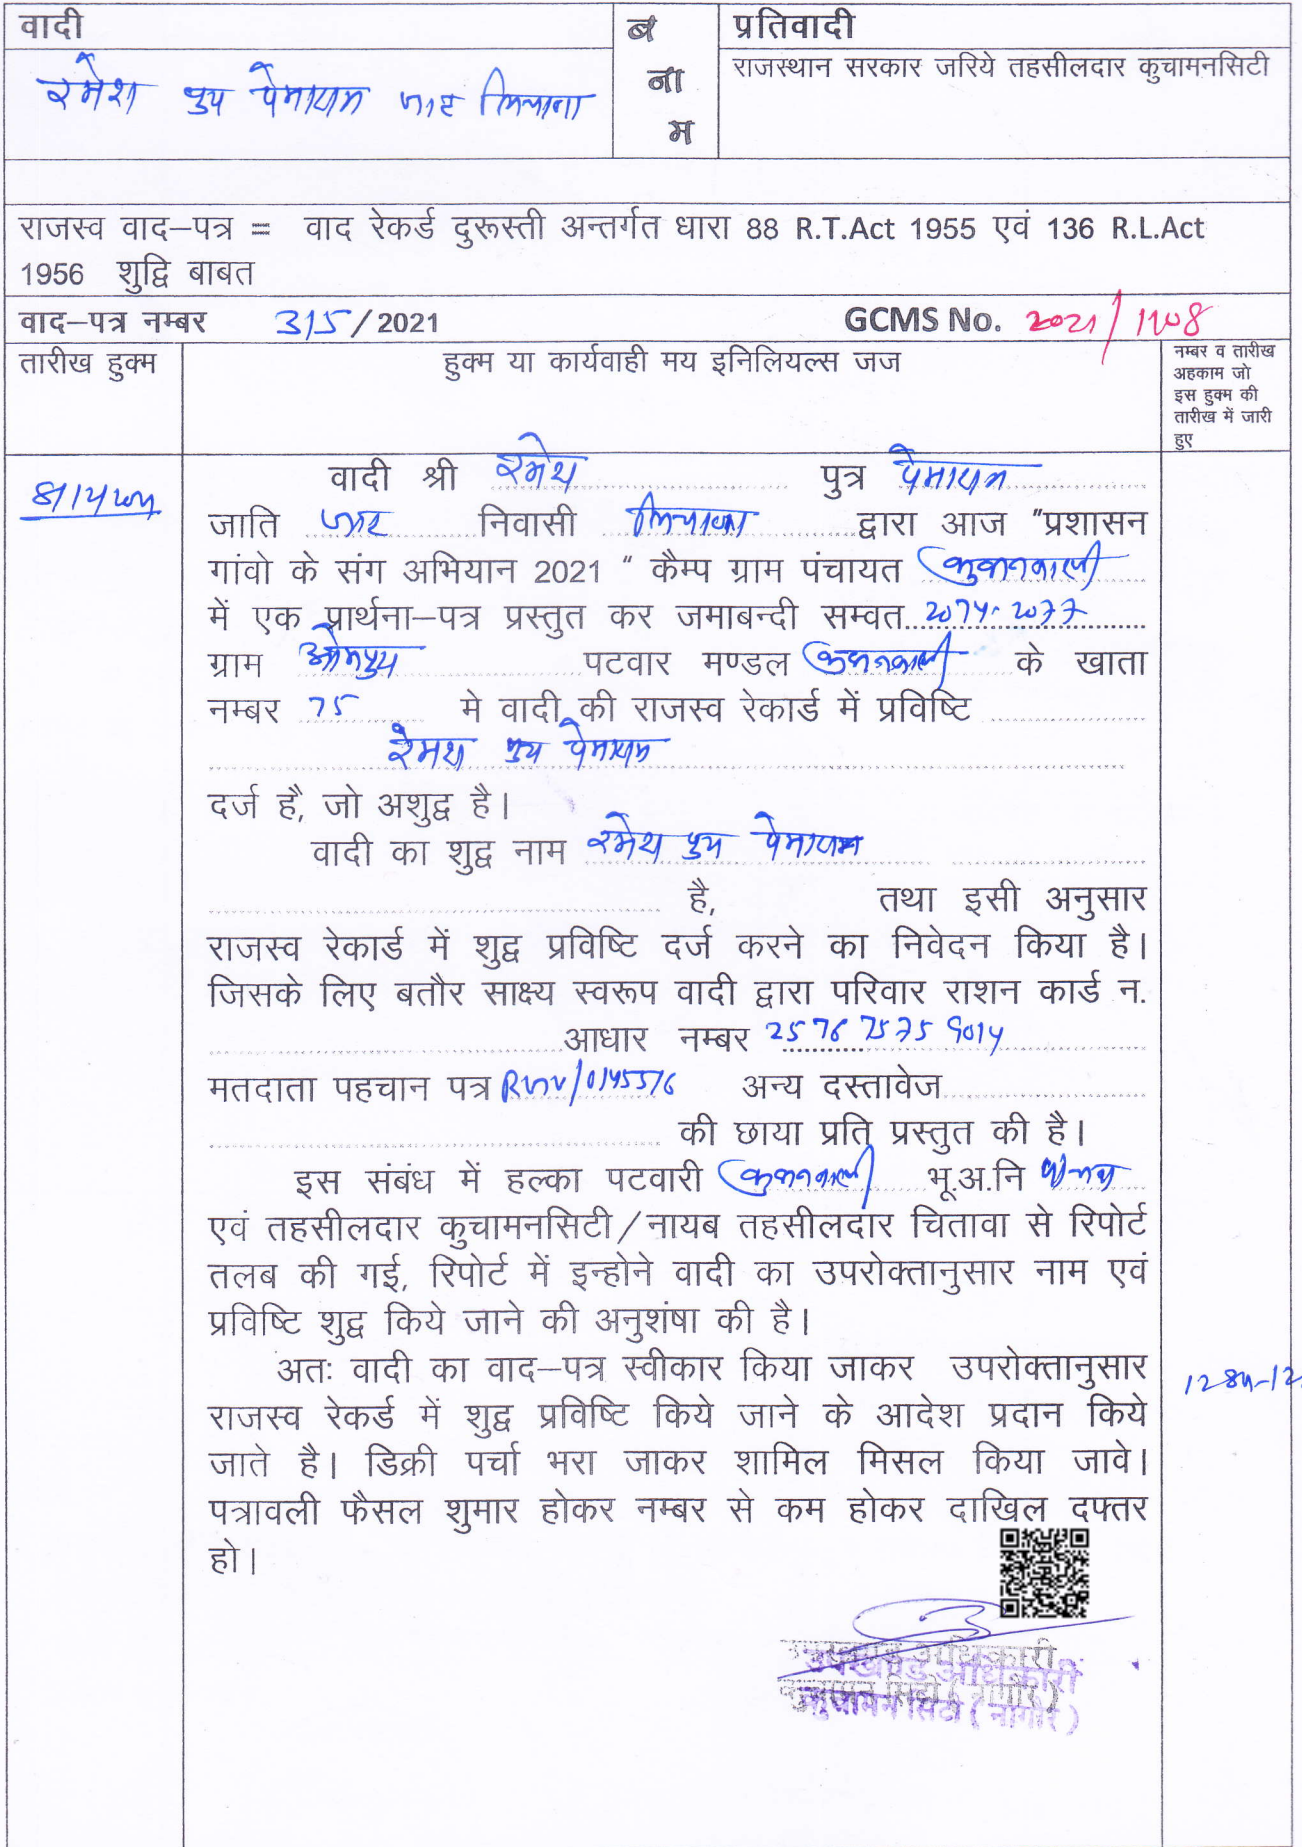 वादी
ब
ना
म
प्रतिवादी
रमेश पुत्र पेमाराम जाट
राजस्थान सरकार जरिये तहसीलदार कुचामनसिटी
राजस्व वाद–पत्र = वाद रेकर्ड दुरूस्ती अन्तर्गत धारा 88 R.T.Act 1955 एवं 136 R.L.Act
1956 शुद्वि बाबत
वाद–पत्र नम्बर 315/2021 GCMS No. 2021/
तारीख हुक्म
हुक्म या कार्यवाही मय इनिलियल्स जज
नम्बर व तारीख
अहकाम जो
इस हुक्म की
तारीख में जारी
हुए
वादी श्री रमेश पुत्र पेमाराम
जाति जाट निवासी द्वारा आज "प्रशासन
गांवो के संग अभियान 2021 " कैम्प ग्राम पंचायत
में एक प्रार्थना–पत्र प्रस्तुत कर जमाबन्दी सम्वत 2074-2077
ग्राम पटवार मण्डल के खाता
नम्बर 75 मे वादी की राजस्व रेकार्ड में प्रविष्टि
रेमश पुत्र पेमाराम
दर्ज है, जो अशुद्व है।
वादी का शुद्व नाम रमेश पुत्र पेमाराम
है, तथा इसी अनुसार
राजस्व रेकार्ड में शुद्व प्रविष्टि दर्ज करने का निवेदन किया है।
जिसके लिए बतौर साक्ष्य स्वरूप वादी द्वारा परिवार राशन कार्ड न.
आधार नम्बर 2576 7575 9014
मतदाता पहचान पत्र अन्य दस्तावेज
की छाया प्रति प्रस्तुत की है।
इस संबंध में हल्का पटवारी भू.अ.नि
एवं तहसीलदार कुचामनसिटी/नायब तहसीलदार चितावा से रिपोर्ट
तलब की गई, रिपोर्ट में इन्होने वादी का उपरोक्तानुसार नाम एवं
प्रविष्टि शुद्व किये जाने की अनुशंषा की है।
अतः वादी का वाद–पत्र स्वीकार किया जाकर उपरोक्तानुसार
राजस्व रेकर्ड में शुद्व प्रविष्टि किये जाने के आदेश प्रदान किये
जाते है। डिक्री पर्चा भरा जाकर शामिल मिसल किया जावे।
पत्रावली फैसल शुमार होकर नम्बर से कम होकर दाखिल दफ्तर
हो।
उपखण्ड अधिकारी
कुचामन सिटी (नागौर)